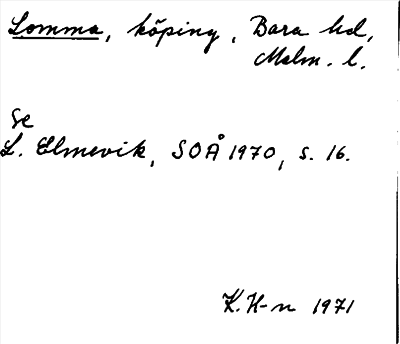 Lomma, köping, Bara hd,
Malm. l.
Se
L. Elmevik, SOÅ 1970, s. 16.
K. H-n 1971